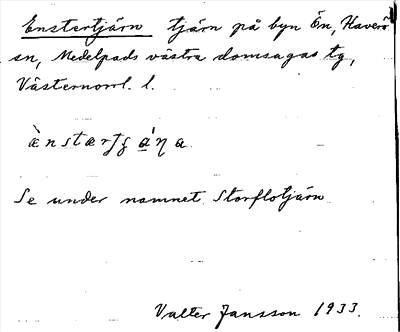 Enstertjärn tjärn på byn Ön, Haverö
sn, Medelpads västra domsagas tg,
Västernorrl. l.
Se under namnet Storflotjärn
Valter Jansson 1933.